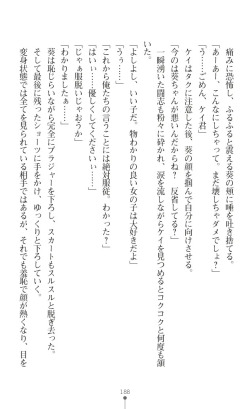 痛みに恐怖し、ふるふると震える葵の頬に唾を吐き捨てる。
「あーあー、こんなにしちゃって。まだ壊しちゃダメでしょ？」
「う……ごめん、ケイ君」
ケイはタクに注意して、葵の顔を掴んで自分に向けさせる。
「今のは葵ちゃんが悪いんだからね？　反省してる？」
一瞬湧いた闘志も粉々に砕かれ、涙を流しながらケイを見つめるとコクコクと何度も頷
いた。
「よしよし、いい子だ。物わかりの良い女の子は大好きだよ」
「うぅ……」
「これから俺たちの言うことには絶対服従、わかった？」
「はい……優しくしてください……」
「じゃぁ服脱いじゃおうか」
「わかりましたぁ……」
葵は恥じらいながら完全にブラジャーを下ろし、スカートもスルスルと脱ぎ去った。
そして最後に残ったショーツに手をかけ、ゆっくりと下ろしていく。
変身状態では全てを晒されている相手ではあるが、それでも羞恥で顔が熱くなり、目を
188